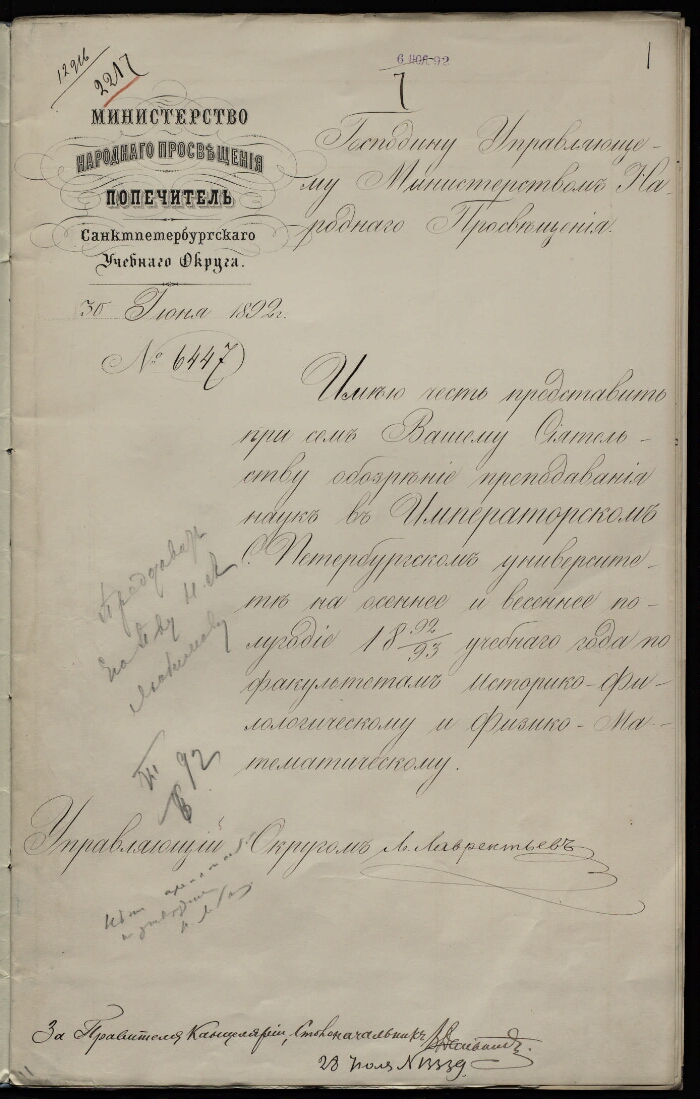 12916
2217
6 ИЮЛ 92
1
7
МИНИСТЕРСТВО
НАРОДНАГО ПРОСВѢЩЕНІЯ
ПОПЕЧИТЕЛЬ
Санктпетербургскаго
Учебнаго Округа.
30 Іюня 1892 г.
№ 6447
Господину Управляюще-
му Министерствомъ На-
роднаго Просвѣщенія.
Имѣю честь представить
при семъ Вашему Сіятель-
ству обозрѣніе преподаванія
наукъ въ Императорскомъ
С. Петербургскомъ университе-
тѣ на осеннее и весеннее по-
лугодіе 18 92/93 учебнаго года по
факультетамъ историко-фи-
лологическому и физико-Ма-
тематическому.
92
Управляющій Округомъ Л. Лаврентьевъ
За Правителя Канцеляріи, Столоначальникъ
28 Іюля N 13339.